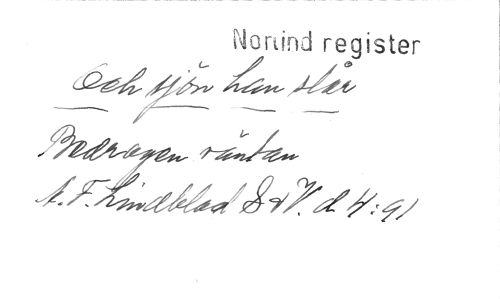 Norlind register
Och sjön han slår
Bedragen väntan
A. F. Lindblad S & V. d. 4:91